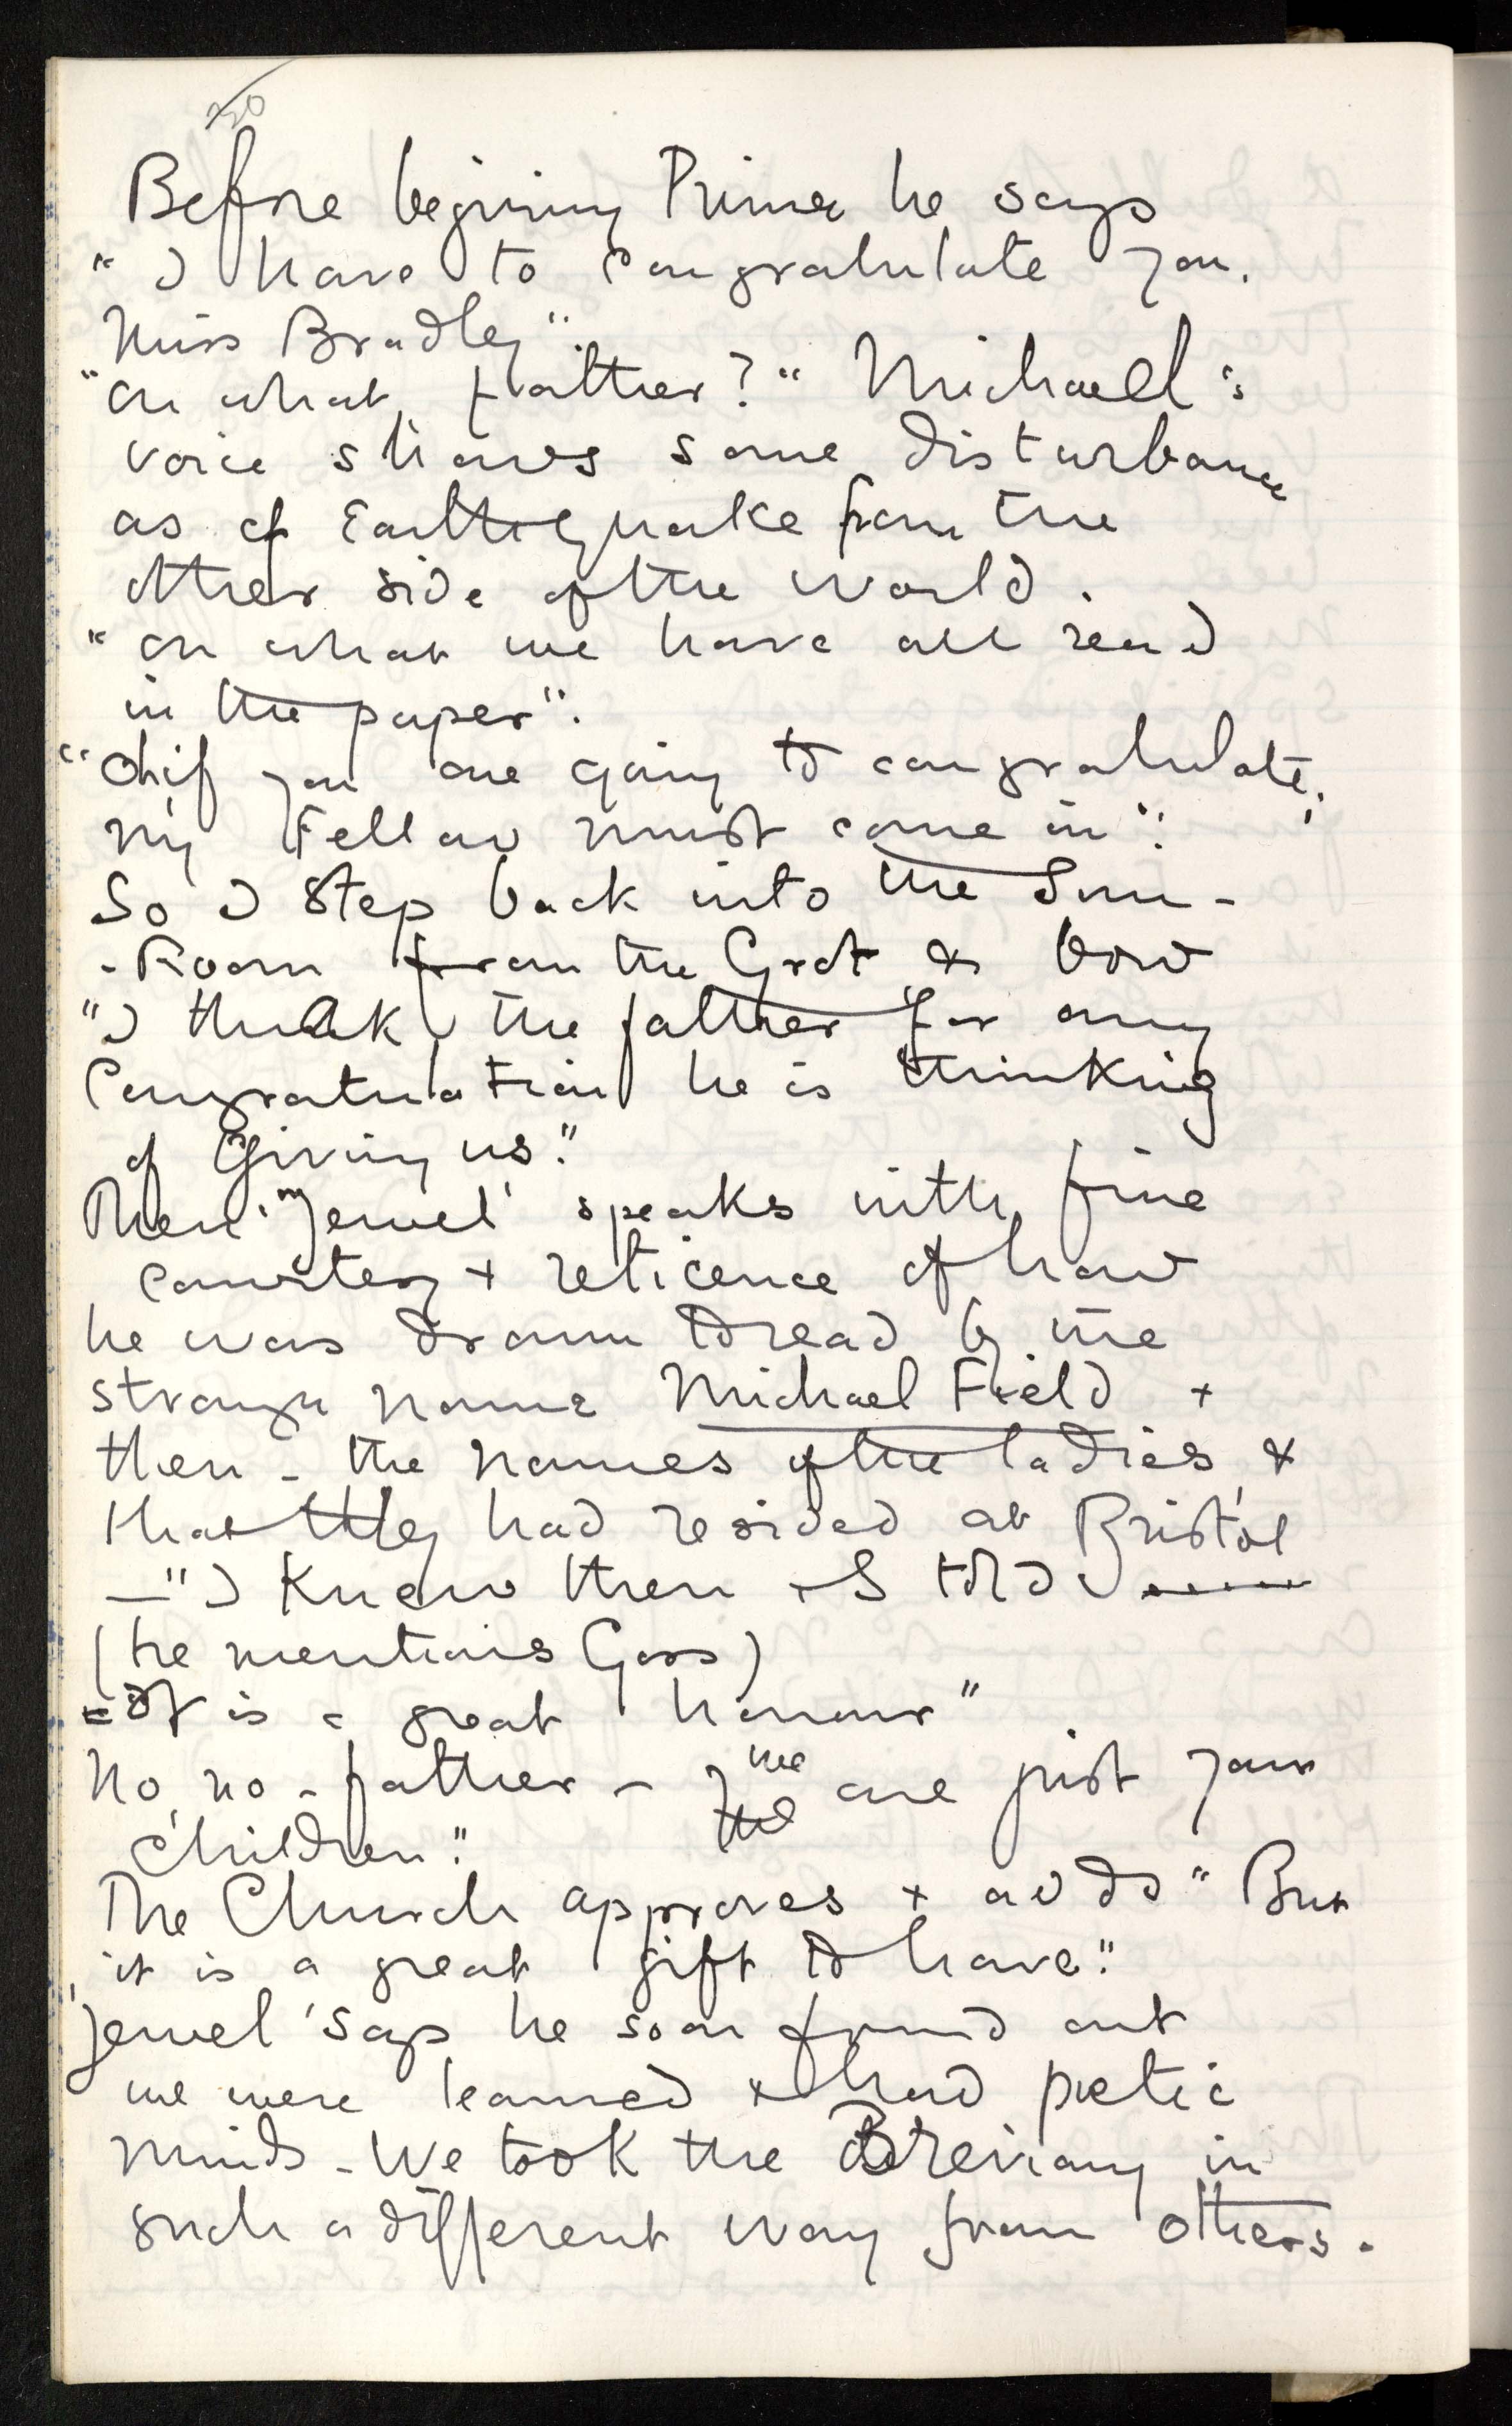 30
Before begining Prime he says
" I have to congratulate you.
Miss Bradley".
"On what, father?" Michael's
voice shows some disturbance
as of Earthquake from the
other side of the world.
"on what we have all read
in the paper".
"Oh if you are going to congratulate,
my Fellow must come in".
So I step back into the Sun-
-Room from the Grot & bow
"I thank the father for any
Congratulation he is thinking
of Giving us."
Then 'Jewel' speaks with fine
courtesy + reticence of how
he was drawn to read by the
strange name Michael Field +
then - the names of the ladies &
that they had resided at Bristol
—"I knew then & I told
(he mentions Goss)
"It is a great honour"
No, no - father - we are just your
children".
The Church approves + adds " But
it is a great gift to have".
'Jewel' says he soon found out
we were learned & had poetic
minds - We took the Breviary in
such a different way from others.